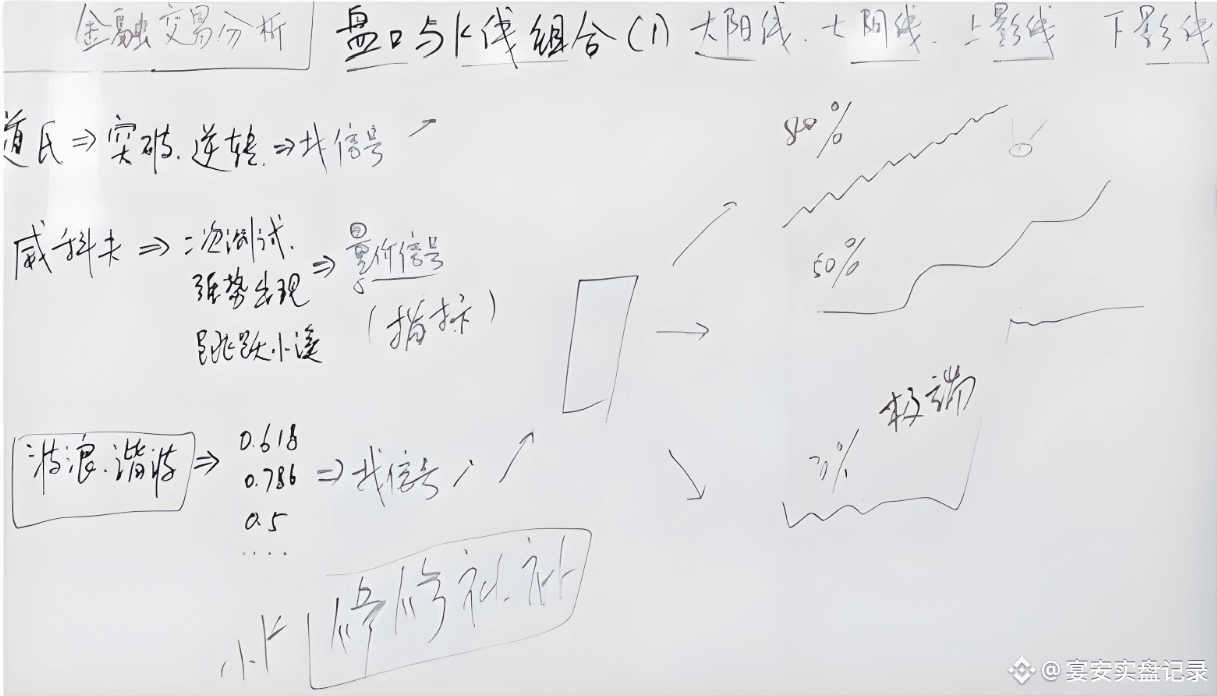 金融交易分析
盘口与K线组合(1) 大阳线、大阴线、上影线 下影线
道氏⇒突破、逆转、⇒找信号
威科夫⇒二次测试、
强势出现
跳跃小溪
⇒量价信号
(指标)
波浪、谐波⇒
0.618
0.786
0.5
....
⇒找信号
小K 修修补补
80%
50%
极端
3%
@宴安实盘记录